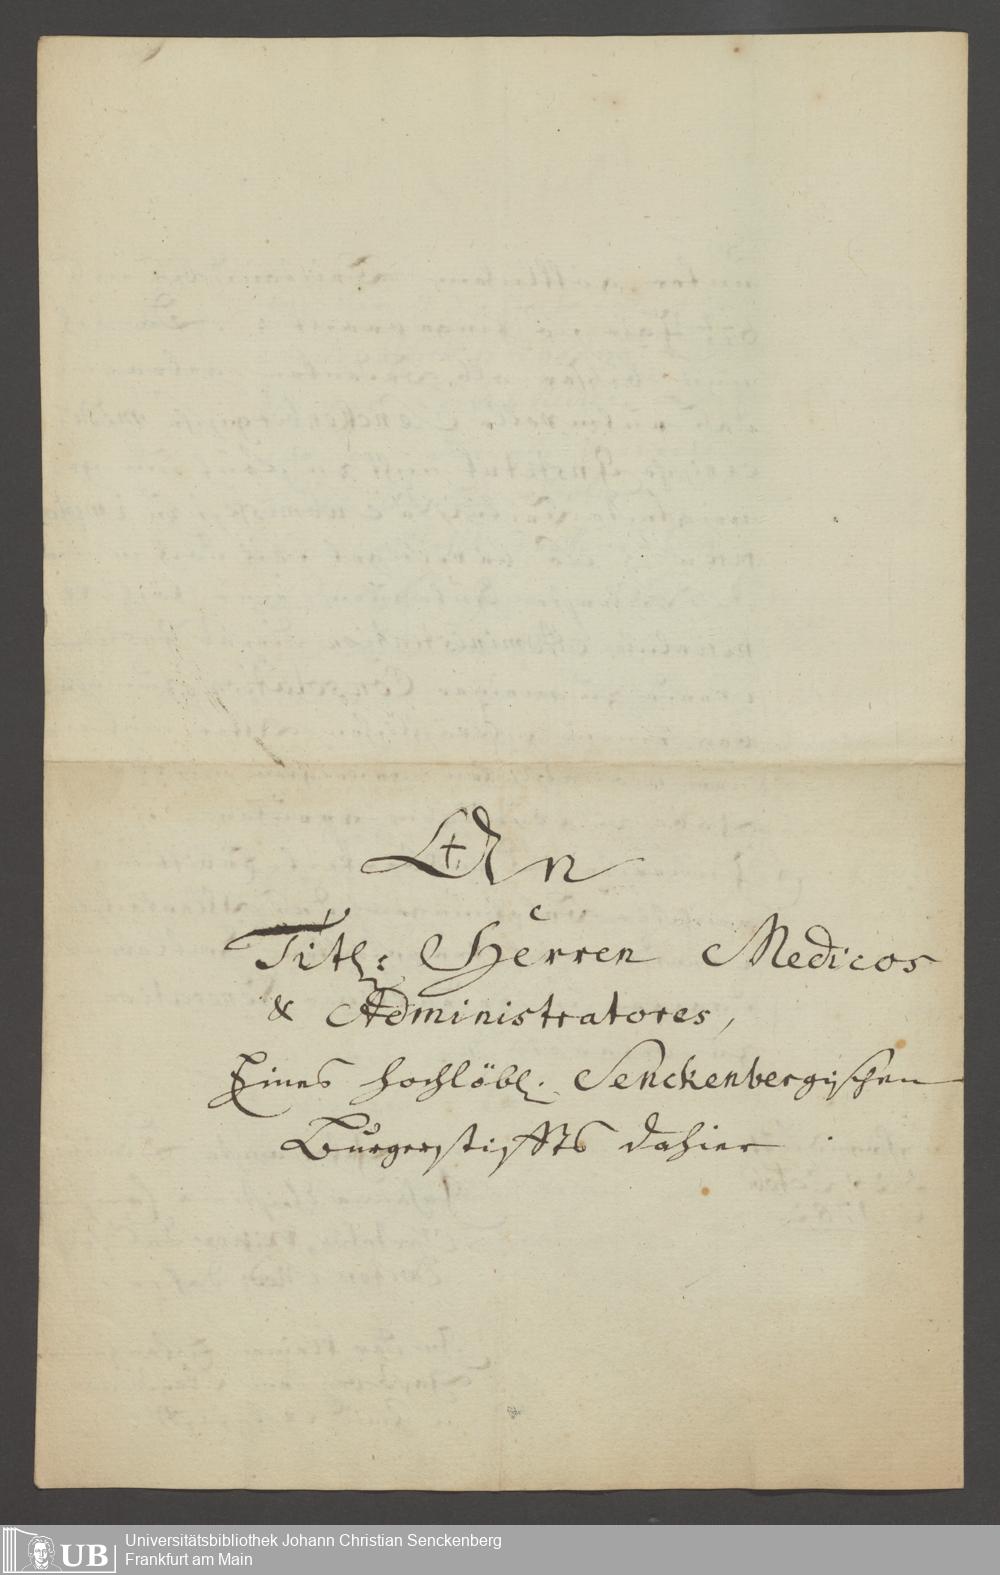 An
Titl: Herren Medicos
& Administratores,
Eines hochlöbl. Senckenbergischen
Burgerstiffts dahier
UB
Universitätsbibliothek Johann Christian Senckenberg
Frankfurt am Main